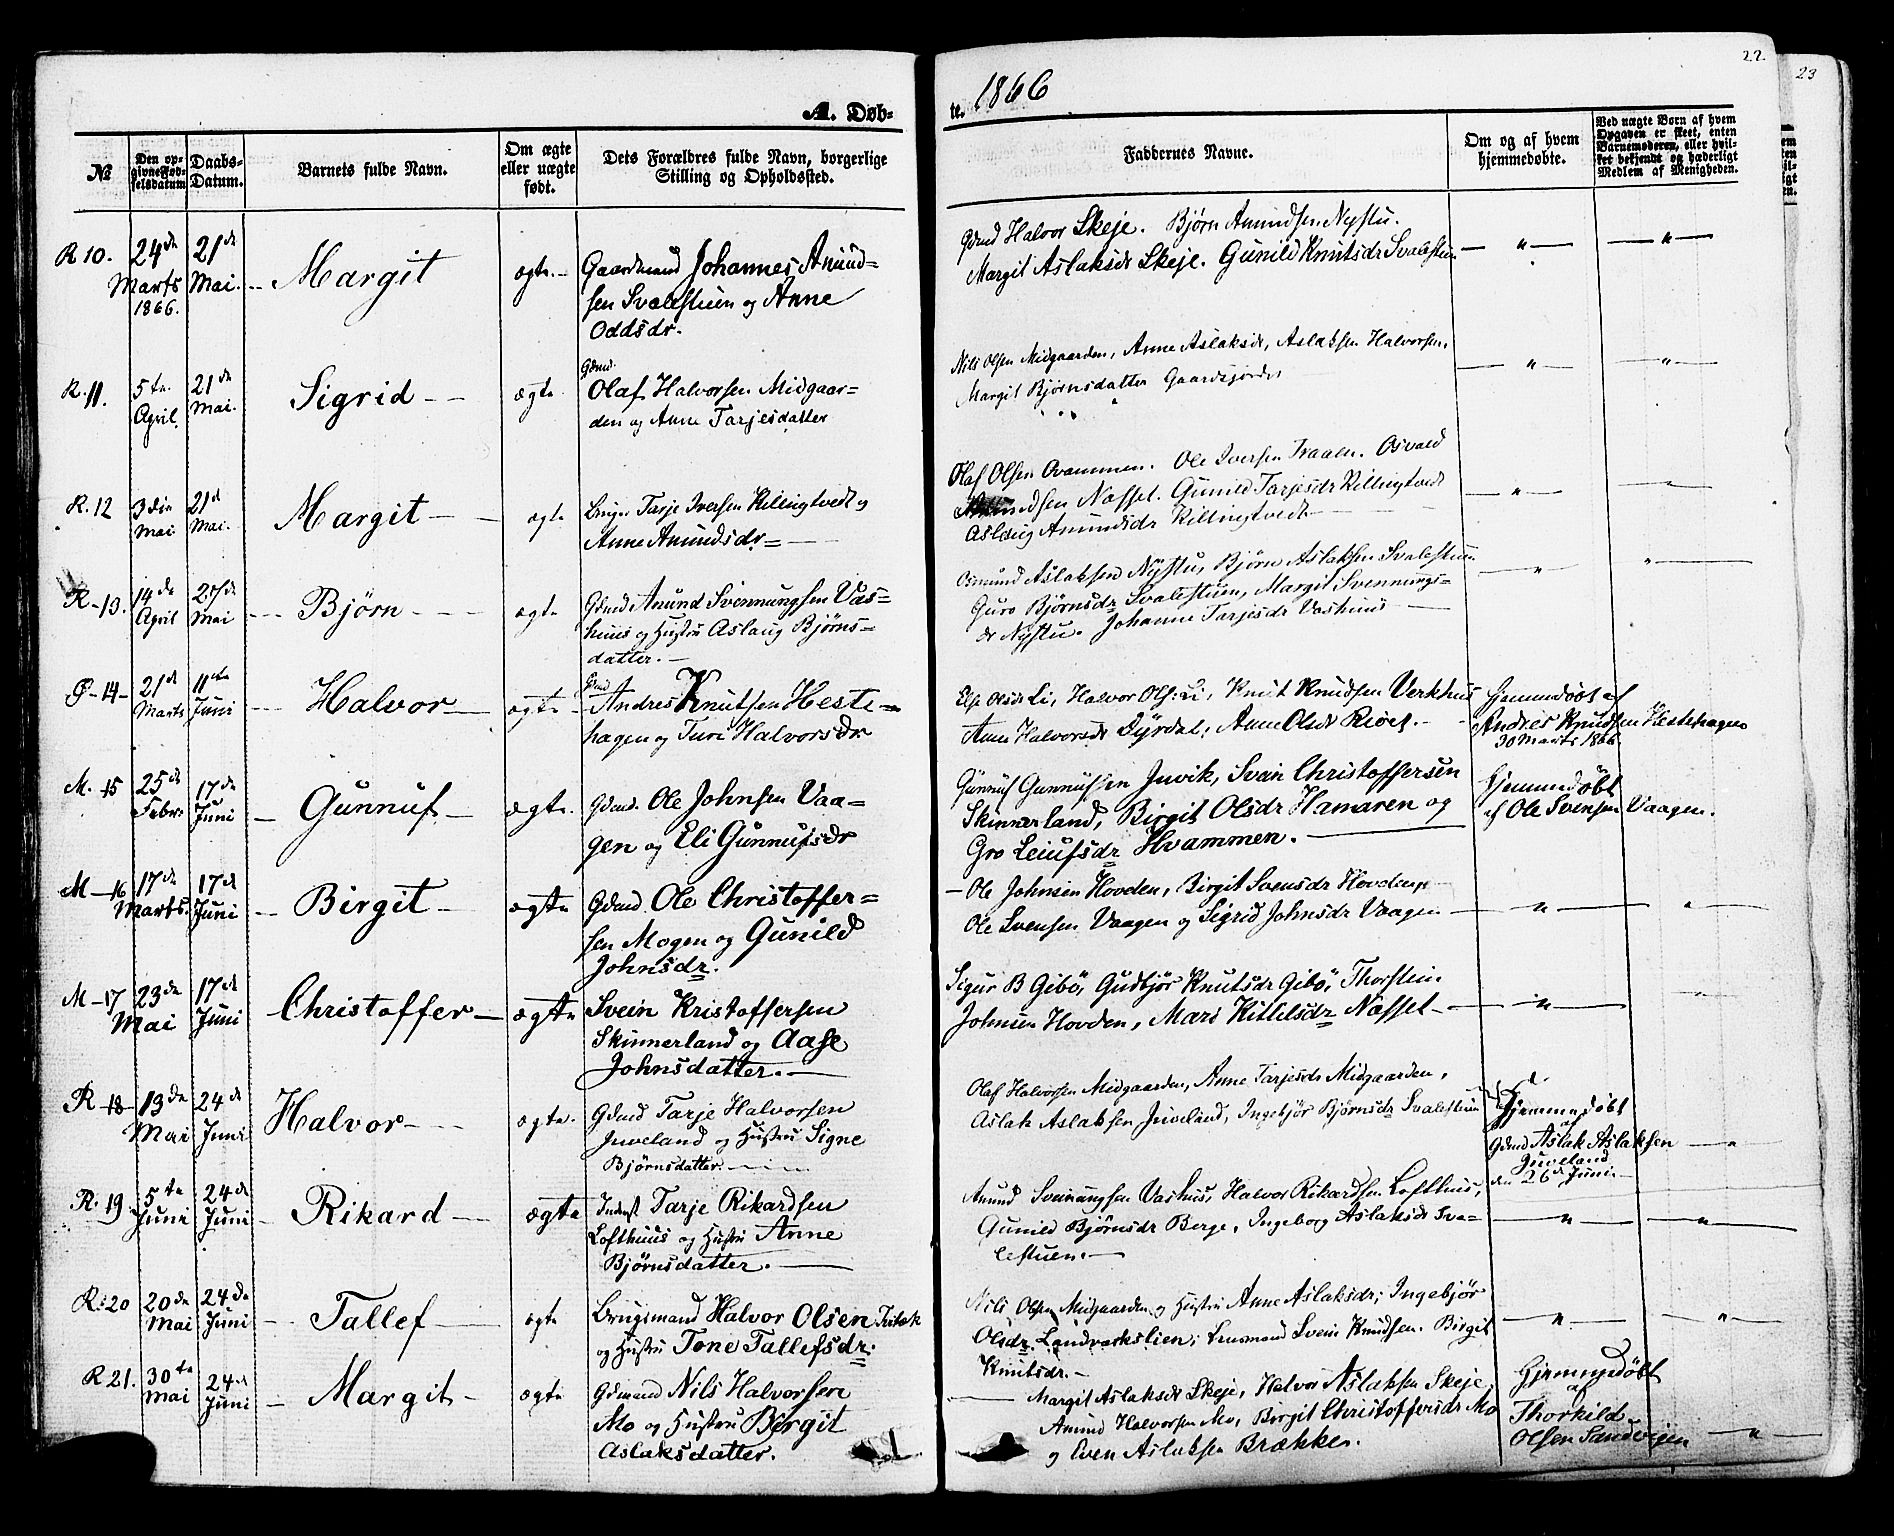 22.
23
A. Døb-
te. 1866
№
Den op-
givne Fød-
selsdatum
Daabs-
Datum.
Barnets fulde Navn.
Om ægte
eller uægte
født.
Dets Forældres fulde Navn, borgerlige
Stilling og Opholdssted.
Faddernes Navne.
Om og af hvem
hjemmedøbte.
Ved uægte Børn af hvem
Opgaven er skeet, enten
Barnemoderen, eller hvil-
ket bekjendt og hæderligt
Medlem af Menigheden.
R 10.
24de
Marts
1866.
21de
Mai.
Margit
ægte.
Gaardmand Johannes Amund-
sen Svalestuen og Anne
Oddsdr.
Gdmd Halvor Skeje. Bjørn Amundsen Nystu.
Margit Aslaksdr Skeje. Gunild Knutsdr Svalestuen
R. 11.
5te
April.
21de
Mai.
Sigrid
ægte
Gdmd.
Olaf Halvorsen Midgaar-
den og Anne Tarjesdatter
Nils Olsen Midgaarden, Anne Aslaksdr, Aslaksen Halvorsen,
Margit Bjørnsdatter
R. 12
3die
Mai
21d
Mai.
Margit
ægte
Tarje Iversen Killingtvedt og
Anne Amundsdr
Olaf Olsen Ovammen. Ole Iversen Traaen. Osvald
Amundsen Næsset. Gunild Tarjesdr Killingtvedt
Aslaug Amundsdr Killingtvedt
R-13.
14de
April
27de
Mai
Bjørn
ægte
Gdmd Amund Svennungsen Vas-
huus og Hustru Aslaug Bjørns-
datter.
Osmund Aslaksen Nystu, Bjørn Aslaksen Svalestuen
Guro Bjørnsdr Svalestuen, Margit Svennungs-
dr Nystu. Johanne Tarjesdr Vashuus
Ø-14
21de
Marts
11te
Juni
Halvor
ægte
Gdmd
Andres Knutsen Heste-
hagen og Turi Halvorsdr
Olsdr Li, Halvor Ols: Li, Knut Knudsen Verkhus
Anne Halvorsdr Dyrdal, Anne Olsdr
Hjemmedøbt af
Andres Knudsen Hestehagen
30 Marts 1866.
M. 15
25de
Febr:
17de
Juni
Gunnuf
ægte.
Gdmd. Ole Johnsen Vaa-
gen og Eli Gunnufsdr
Gunnuf Gunnufsen Juvik, Svein Christoffersen
Skinnerland, Birgit Olsdr Hamaren og
Gro Leiufsdr Hvammen.
Hjemmedøbt
af Ole Svensen Vaagen.
M-16
17de
Marts.
17de
Juni
Birgit
ægte
Gdmd Ole Christoffer-
sen Mogen og Gunild
Johnsdr.
Ole Johnsen Hovden, Birgit Svensdr Hovden,
Ole Svensen Vaagen og Sigrid Johnsdr Vaagen
M-17
23de
Mai
17de
Juni
Christoffer
ægte
Svein Kristoffersen
Skinnerland og Aase
Johnsdatter.
Sigur B Gibø, Gudbjør Knutsdr Gibø, Thorstein
Johnsen Hovden, Mari Kittelsdr Næsset
R-18
13de
Mai
24de
Juni
Halvor
ægte.
Gdmd Tarje Halvorsen
Juveland og Hustru Signe
Bjørnsdatter.
Olaf Halvorsen Midgaarden, Anne Tarjesdr Midgaarden,
Aslak Aslaksen Juveland, Ingebjør Bjørnsdr Svalestuen
Hjemmedøbt
af
Gdmd Aslak Aslaksen
Juveland
den 26de Juni
R. 19
5te
Juni
24de
Juni
Rikard
ægte
Inderst Tarje Rikardsen
Lofthuus og Hustru Anne
Bjørnsdatter.
Amund Svennungsen Vashus, Halvor Rikardsen Lofthus,
Gunild Bjørnsdr Berge, Ingeborg Aslaksdr Sva-
lestuen.
R. 20
20de
Mai
24de
Juni
Tallef
ægte
Brugsmand Halvor Olsen
og Hustru Tone Tallefsdr.
Nils Olsen Midgaarden og Hustru Anne Aslaksdr; Ingebjør
Olsdr. Landværkslien; Svein Knudsen. Birgit
Knutsdr.
R 21.
30te
Mai
24de
Juni
Margit
ægte
Gdmand Nils Halvorsen
Mo og Hustru Birgit
Aslaksdatter.
Margit Aslaksdr Skeje, Halvor Aslaksen Skeje,
Amund Halvorsen Mo, Birgit Christoffersdr Mo
og Even Aslaksen Brække.
Hjemmedøbt
af
Thorkild
Olsen Sandvigen